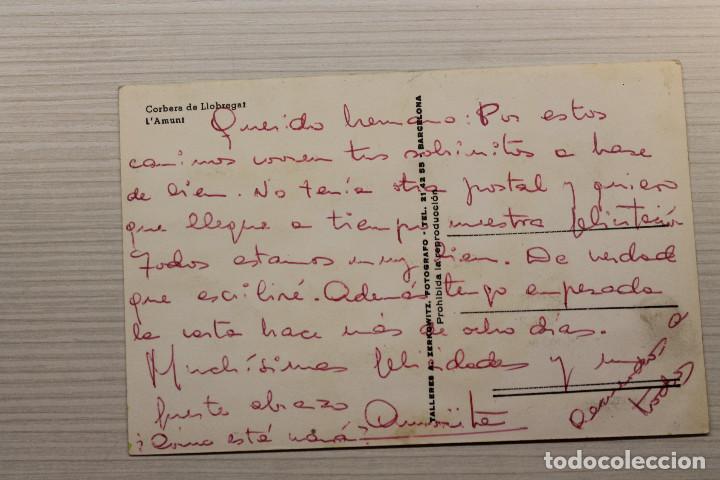 Corbera de Llobregat
L'Amunt
Querido hermano: Por estos
caminos corren tus sobrinitos a base
de bien. No tenía otra postal y quiero
que llegue a tiempo nuestra felicitación
Todos estamos muy bien. De verdad
que escribiré. Además tengo empezada
la carta hace más de ocho días.
Muchísimas felicidades y un
fuerte abrazo
¿Cómo está mamá?
a
todos
TALLERES A. ZERKOWITZ, FOTOGRAFO - TEL. 21 42 55 - BARCELONA
Prohibida la reproducción
todocoleccion.net